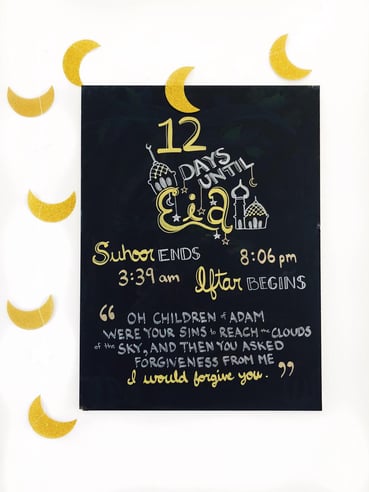 12
DAYS
UNTIL
Eid
Suhoor ENDS
3:39 am
8:06 pm
Iftar BEGINS
“ OH CHILDREN of ADAM
WERE YOUR SINS to REACH the CLOUDS
of the SKY, AND THEN YOU ASKED
FORGIVENESS FROM ME
I would forgive you. ”